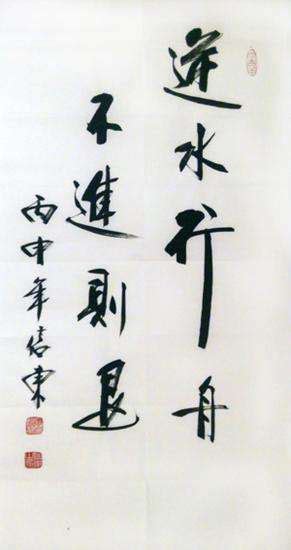 逆水行舟
不進則退
丙申年信東